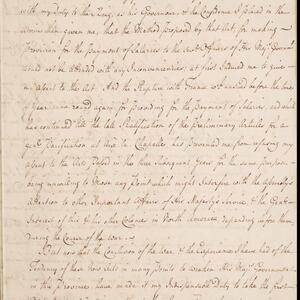 with my duty to the King, as his Governour, & the Confidence I placed in the
Assurances given me, that the Method proposed by that Act, for making
Provision for the payment of Salaries to the several Officers of His Majy's Governmt
would not be attended with any Inconveniencies, at first induced me to give
my assent to the Act. And the Rupture with France wch ensued before the time of
Year came round again for providing for the payment of Salaries, and wch
has continued till the late Ratification of the Preliminary Articles for a
genl Pacification at Aix la Chapelle has prevented me from refusing my
assent to the Acts passed in the three subsequent Years for the same purpose,
being unwilling to Move any Point which might Interfere with the Assembly's
Attention to other Important Affairs of His Majesty's Service, & the
of this & his other Colonies in North America, depending before them
during the Course of the War.
But now that the Conclusion of the War, & the Experience I have had of the
Tendency of these new Acts in many Points to weaken His Majy's Government
in this Province, have made it my Indispensable Duty to take the first